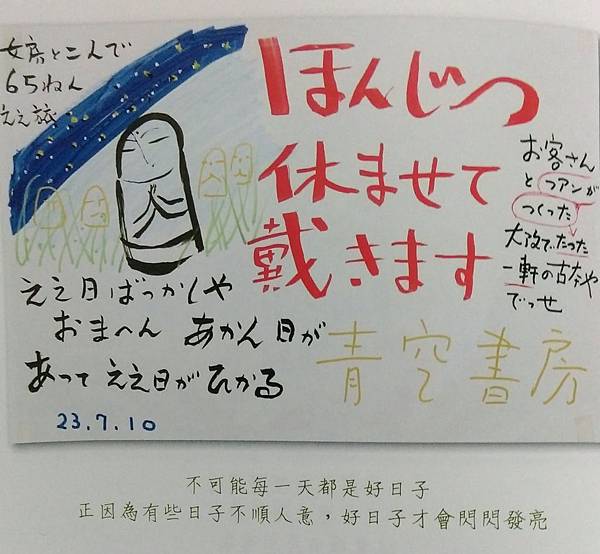 女房とこんで
65ねん
ええ旅
ほんじつ
休ませて
戴きます
お客さん
とファンが
つくった
大阪で、たった
一軒の古本や
でっせ
ええ日ばっかしや
おまへん あかん日が
あって ええ日がひかる
青空書房
23.7.10
不可能每一天都是好日子
正因為有些日子不順人意，好日子才會閃閃發亮